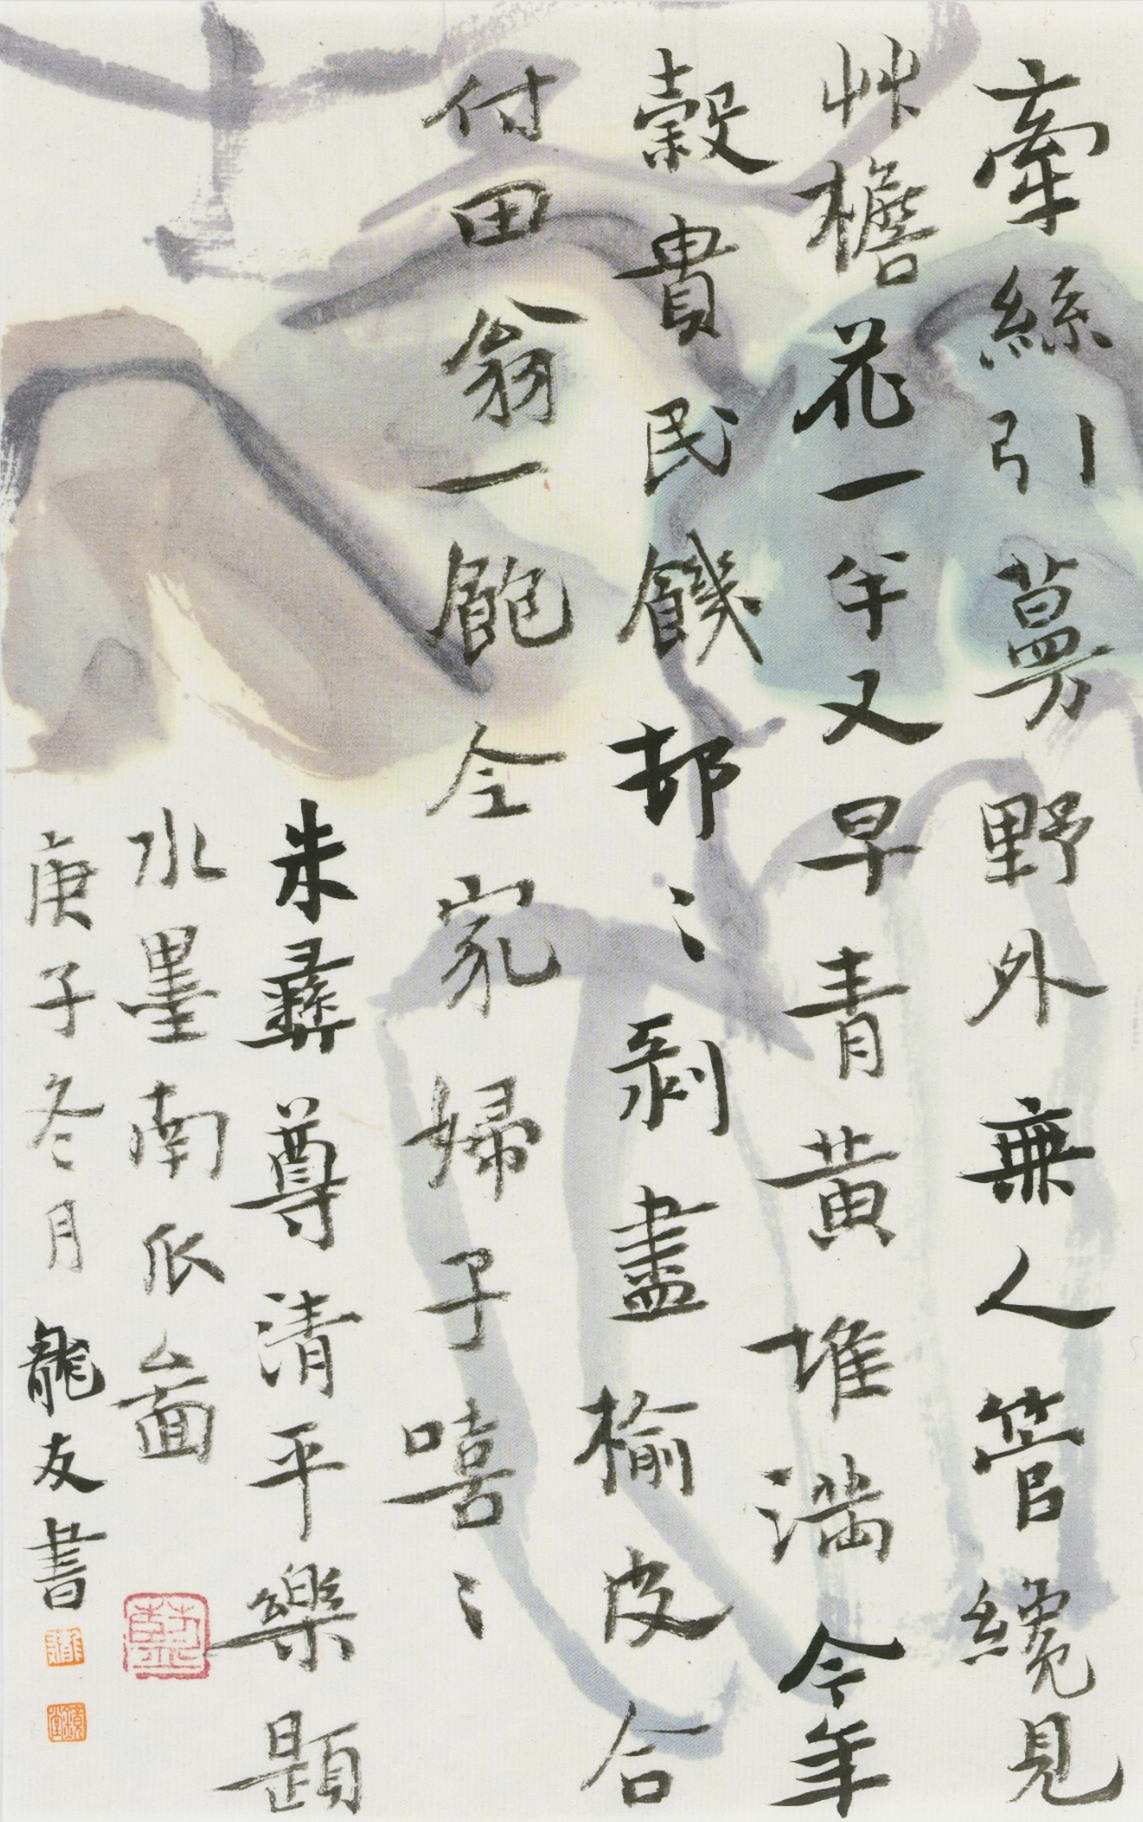 牽絲引蔓野外無人管纔見
艸檐花一半又早青黃堆滿今年
穀貴民饑邨〻剥盡榆皮合
付田翁一飽仝家婦子嘻〻
朱彝尊清平樂題
水墨南瓜啚
庚子冬月龍友書